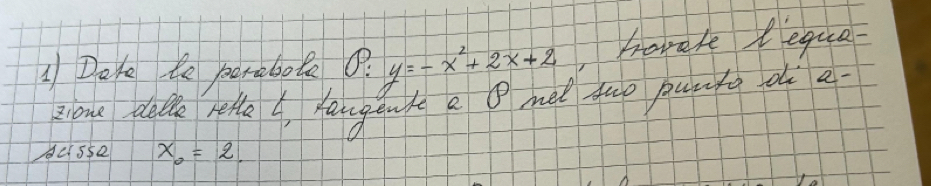 1) Data la parabola P: y=-x²+2x+2, trovate l'equa-
zione della retta t, tangente a P nel suo punto di a-
scissa x₀ = 2.